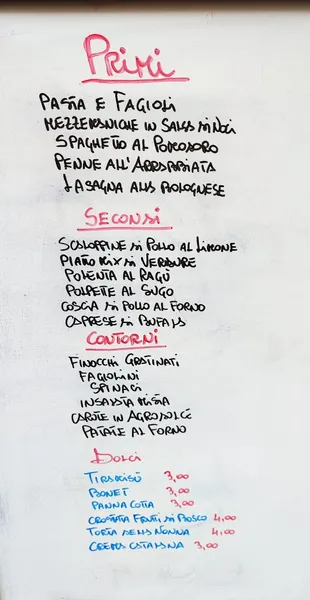 PRIMI
PASTA E FAGIOLI
MEZZEMANICHE IN SALSA DI NOCI
SPAGHETTO AL POMODORO
PENNE ALL'ARRABBIATA
LASAGNA ALLA BOLOGNESE
SECONDI
SCALOPPINE DI POLLO AL LIMONE
PIATTO MIX DI VERDURE
POLENTA AL RAGÙ
POLPETTE AL SUGO
COSCIA DI POLLO AL FORNO
CAPRESE DI BUFALA
CONTORNI
FINOCCHI GRATINATI
FAGIOLINI
SPINACI
INSALATA MISTA
CAROTE IN AGRODOLCE
PATATE AL FORNO
DOLCI
TIRAMISÙ 3,00
BONET 3,00
PANNA COTTA 3,00
CROSTATA FRUTTI DI BOSCO 4,00
TORTA DELLA NONNA 4,00
CREMA CATALANA 3,00